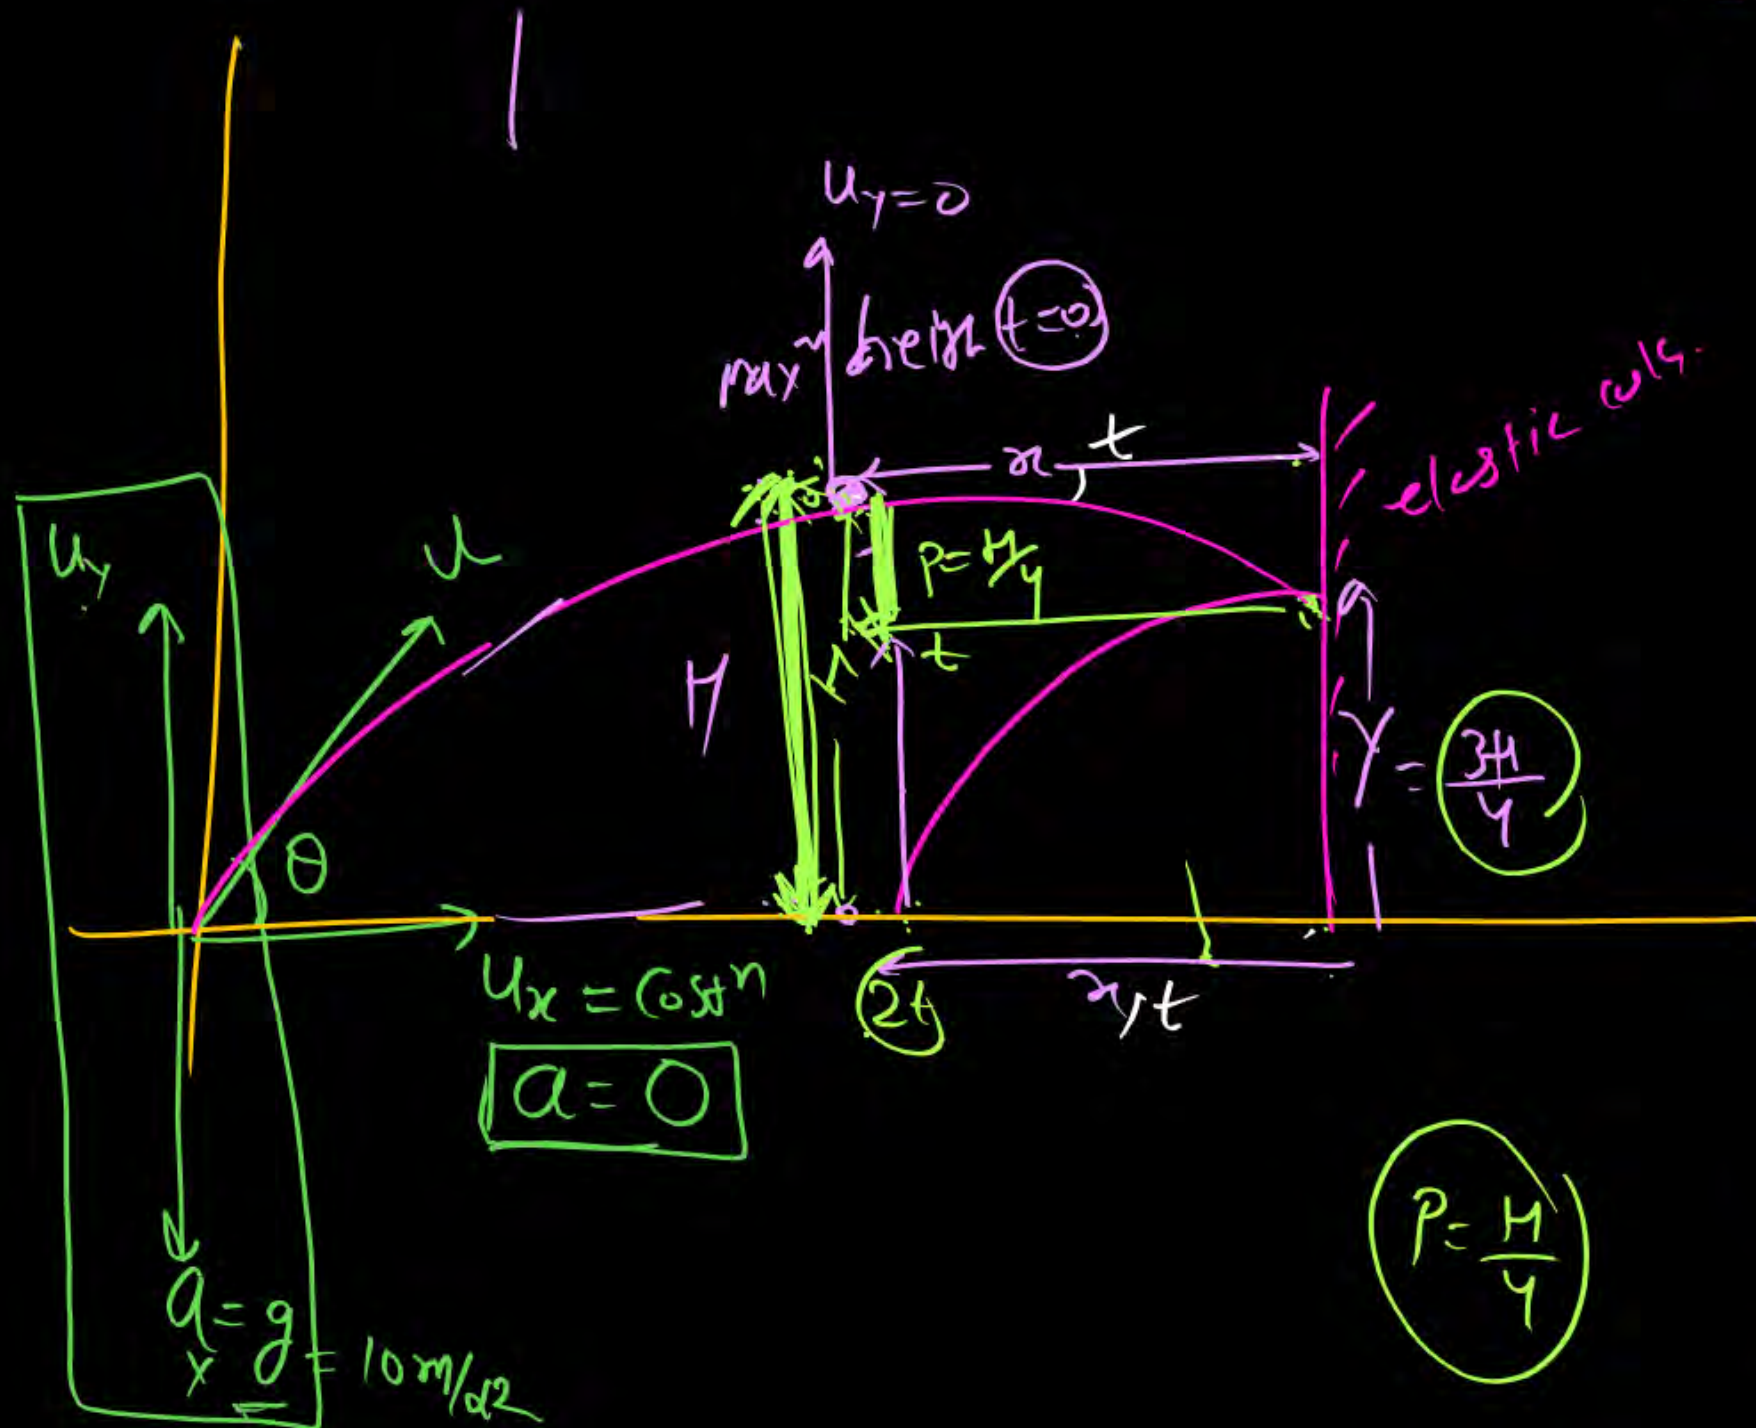 u_y=0
max^m heigh t=0
x t
elastic cols.
u_y
u
P=H/4
t
H
Y = 3H/4
θ
u_x = Cost^n
2t
x, t
a=0
P= H/4
a_y = g = 10m/s2